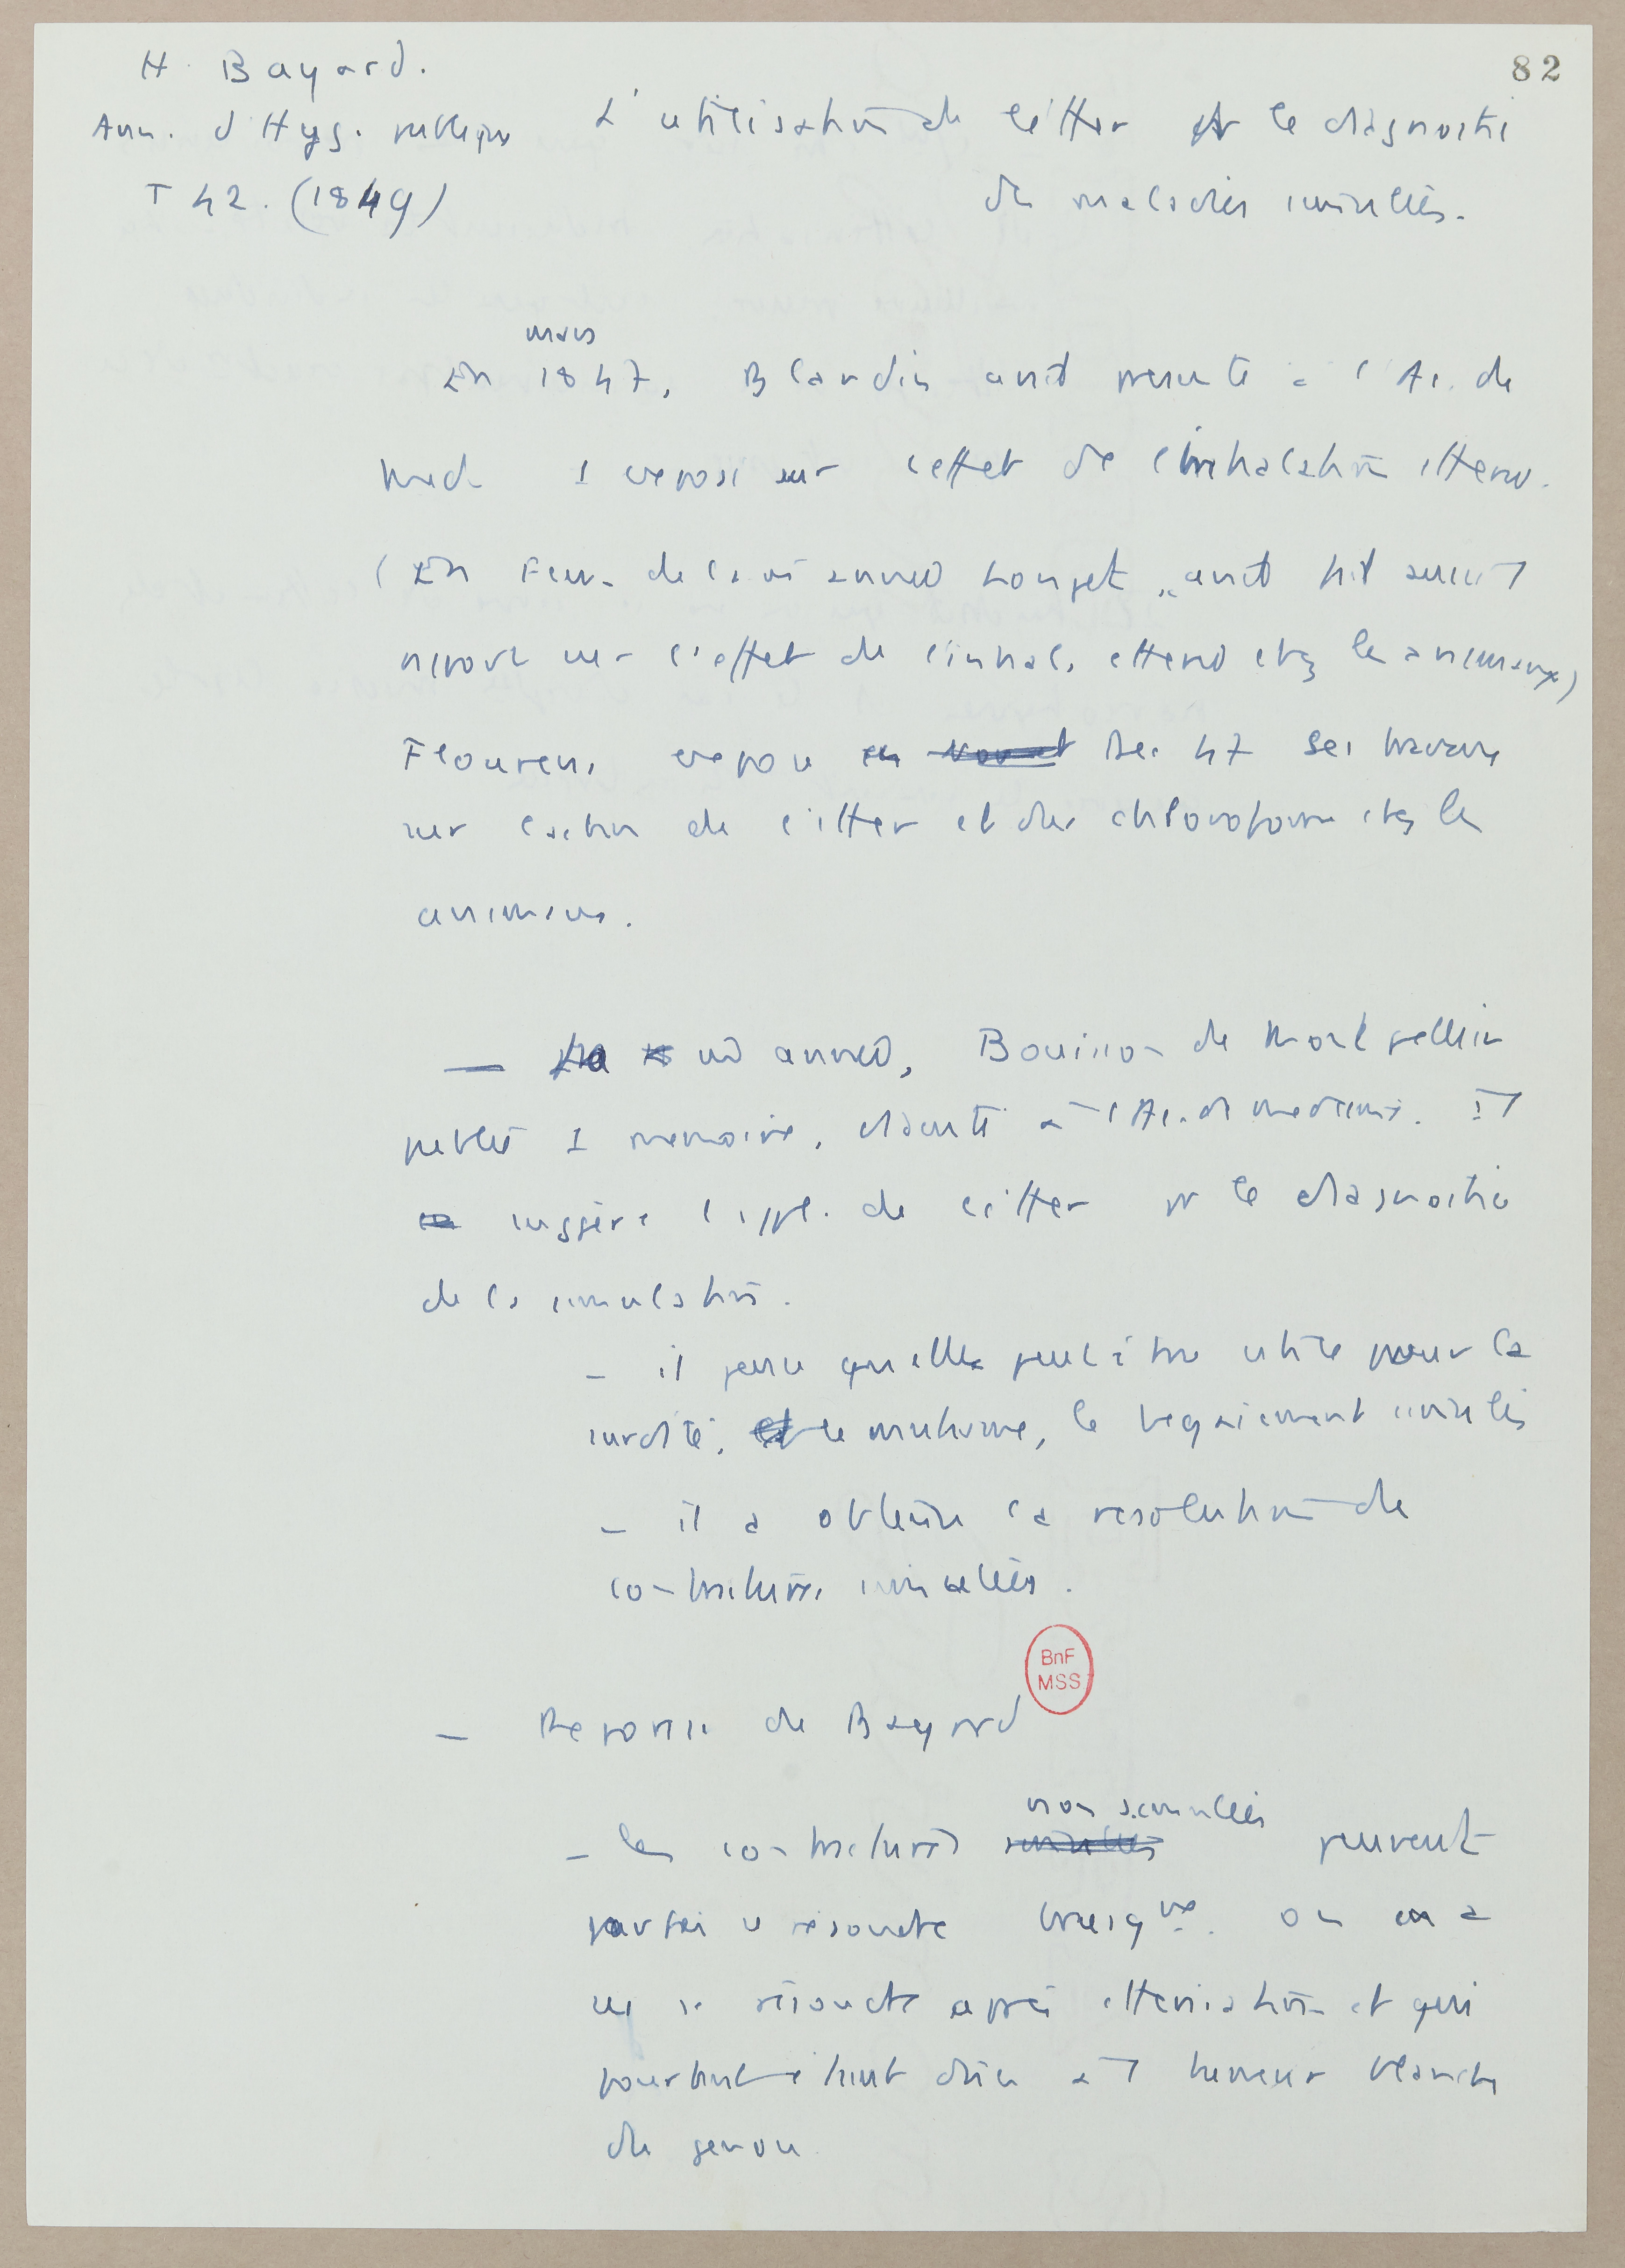 82
H. Bayard.
Ann. d'Hyg. publique
T 42. (1849)
L'utilisation de l'éther pr le diagnostic
de maladies simulées.
mars
En 1847, Blandin avait présenté à l'Ac. de
med. 1 exposé sur l'effet de l'inhalation etheree.
(En Fevr. de la mê année Longet avait fait aussi 1
rapport sur l'effet de l'inhal. etheree chez les animaux)
Flourens expose en Dec 47 ses travaux
sur l'action de l'ether et du chloroforme chez les
animaux.
— La mê année, Bouisson de Montpellier
publie 1 memoire, discuté à l'Ac. de medecine. Il
suggère l'appl. de l'ether pr le diagnostic
de la simulation.
– il pense qu'elle peut être utile pour la
surdité, le mutisme, le begaiement simulés
– il a obtenu la resolution de
contractures simulées.
BnF
MSS
— Reponse de Bayard
non simulées
– les contractures simulées peuvent
parfois se résoudre brusqut. on en a
vu se résoudre après etherisation et qui
pourtant étaient dues à 1 tumeur blanche
du genou